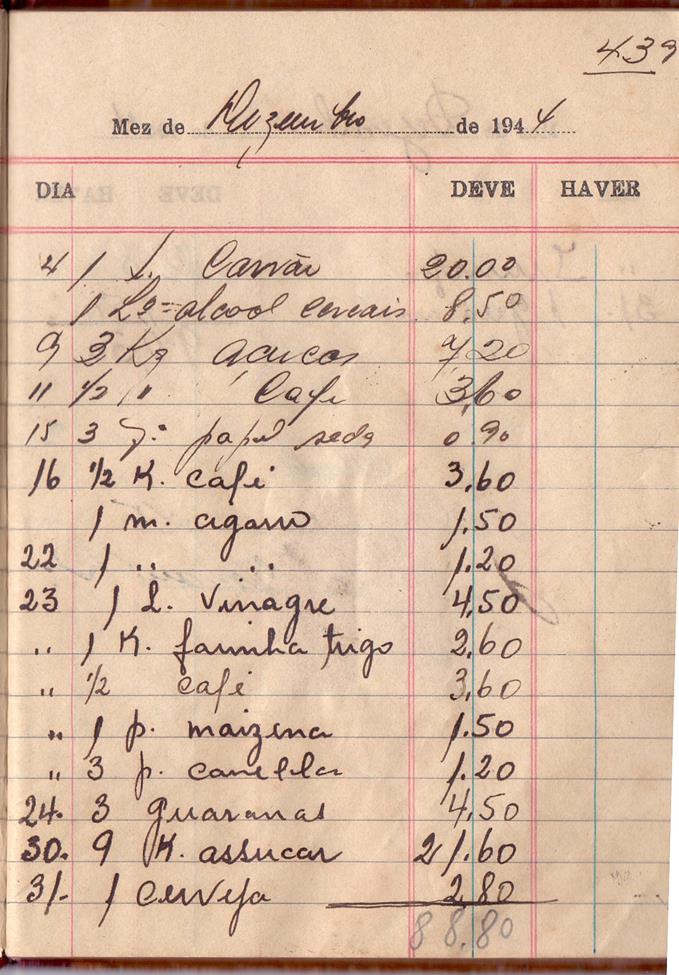 439
Mez de Dezembro de 1944
DIA DEVE HAVER
4 1 Carvão 20.00
1 Lo = alcool cereais 8.50
9 3 Kg acucar 7.20
11 1/2 " Cafe 3.60
15 3 papel seda 0.90
16 1/2 K. café 3.60
1 m. cigarro 1.50
22 1 " " 1.20
23 1 L. Vinagre 4.50
" 1 K. farinha trigo 2.60
" 1/2 café 3.60
" 1 p. maizena 1.50
" 3 p. canella 1.20
24. 3 guaranas 4.50
30. 9 K. assucar 21.60
31- 1 cerveja 2.80
88.80